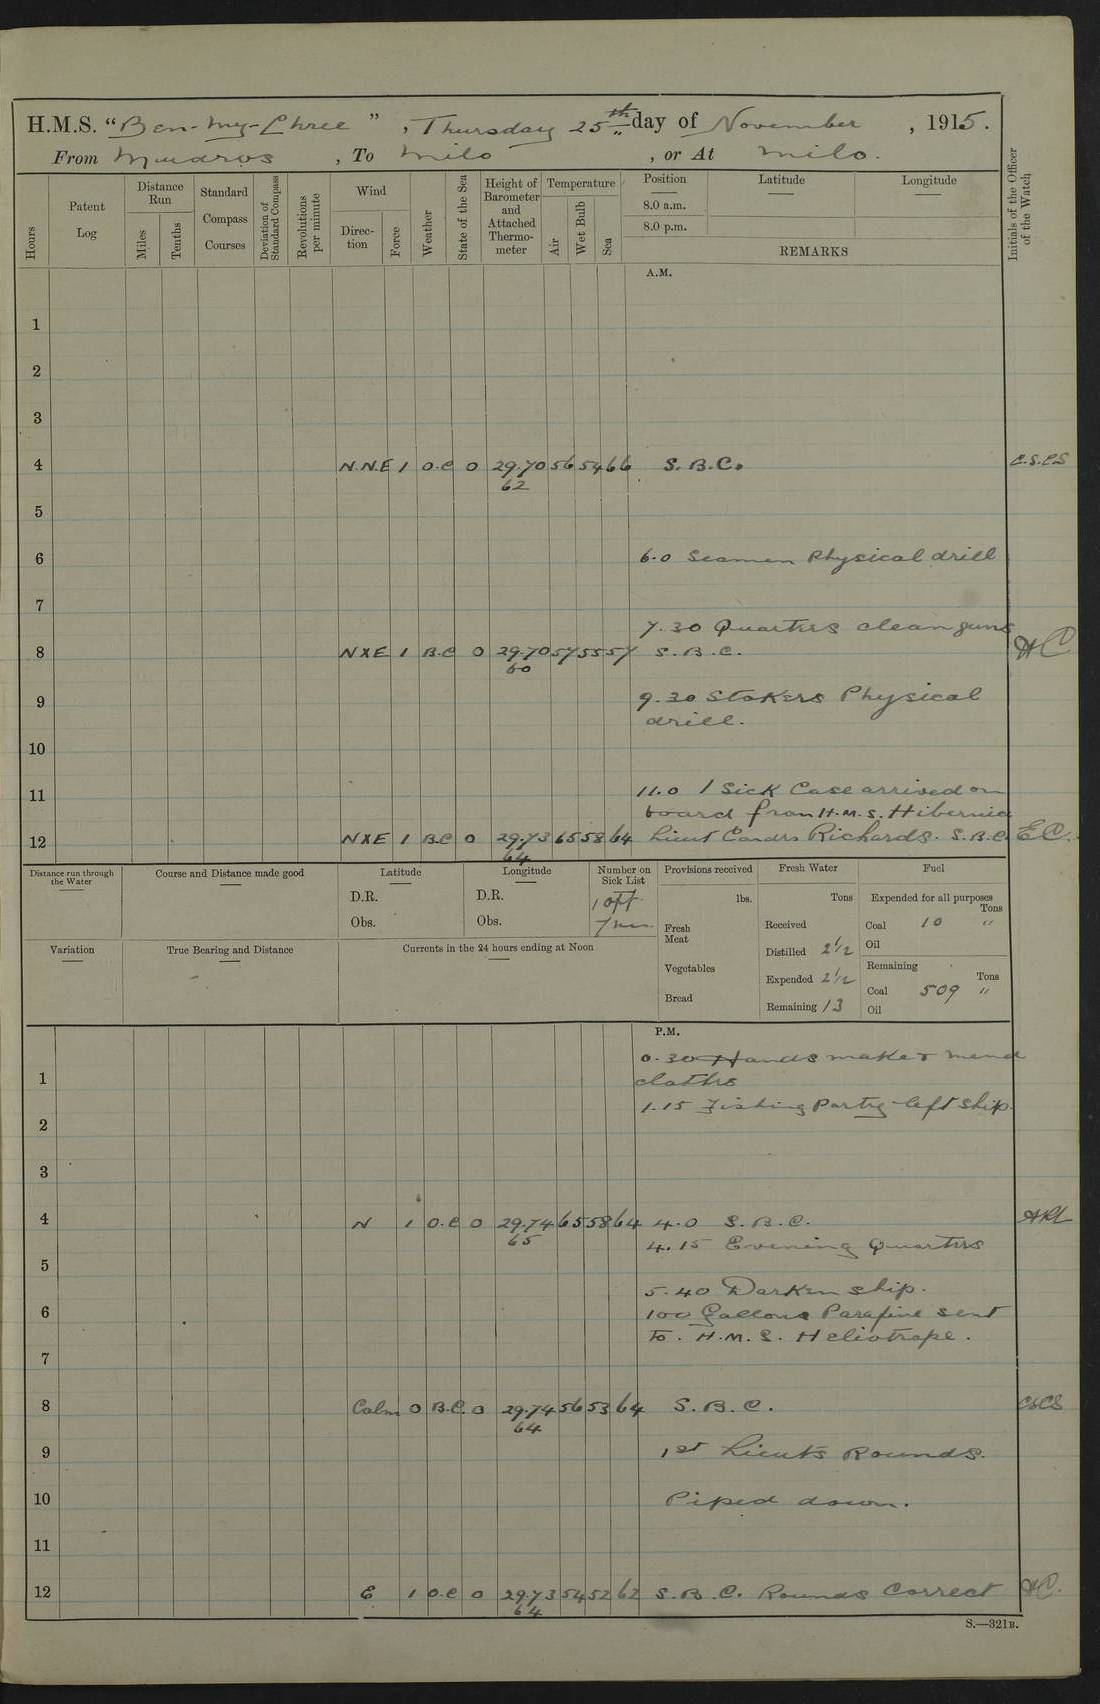 H.M.S. "Ben-my-Chree", Thursday 25th day of November, 1915.
From Mudros, To Milo, or At Milo.
Hours
Patent Log
Distance Run
Miles
Tenths
Standard Compass Courses
Deviation of Standard Compass
Revolutions per minute
Wind
Direction
Force
Weather
State of the Sea
Height of Barometer and Attached Thermometer
Temperature
Air
Wet Bulb
Sea
Position
8.0 a.m.
8.0 p.m.
Latitude
Longitude
REMARKS
Initials of the Officer of the Watch
A.M.
1
2
3
4 N.N.E 1 O.C 0 29.70 56 54 66 S.B.C. C.S.C.S
62
5
6 6.0 Seamen Physical drill
7
7.30 Quarters clean guns
8 NXE 1 B.C 0 29.70 57 55 57 S.B.C. HC
60
9 9.30 Stokers Physical
drill.
10
11 11.0 1 Sick Case arrived on
board from H.M.S. Hibernia
12 NXE 1 B.C 0 29.73 65 58 64 Lieut Comdr Richards. S.B.C. EC.
64
Distance run through the Water
Course and Distance made good
Latitude
D.R.
Obs.
Longitude
D.R.
Obs.
Number on Sick List
1 off.
7 men
Provisions received
lbs.
Fresh Meat
Vegetables
Bread
Fresh Water
Tons
Received
Distilled 2 1/2
Expended 2 1/2
Remaining 13
Fuel
Expended for all purposes
Tons
Coal 10 "
Oil
Remaining
Tons
Coal 509 "
Oil
Variation
True Bearing and Distance
Currents in the 24 hours ending at Noon
P.M.
0.30 Hands make & mend
1 cloths
1.15 Fishing Party left ship.
2
3
4 N 1 O.C 0 29.74 65 58 64 4.0 S.B.C.
65 4.15 Evening Quarters
5
5.40 Darken ship.
6 100 Gallons Parafine sent
to. H.M.S. Heliotrope.
7
8 Calm 0 B.C. 0 29.74 56 53 64 S.B.C. CSCS
64
9 1st Lieuts Rounds.
10 Piped down.
11
12 E 1 O.C 0 29.73 54 52 62 S.B.C. Rounds Correct HC.
64
S.—321B.